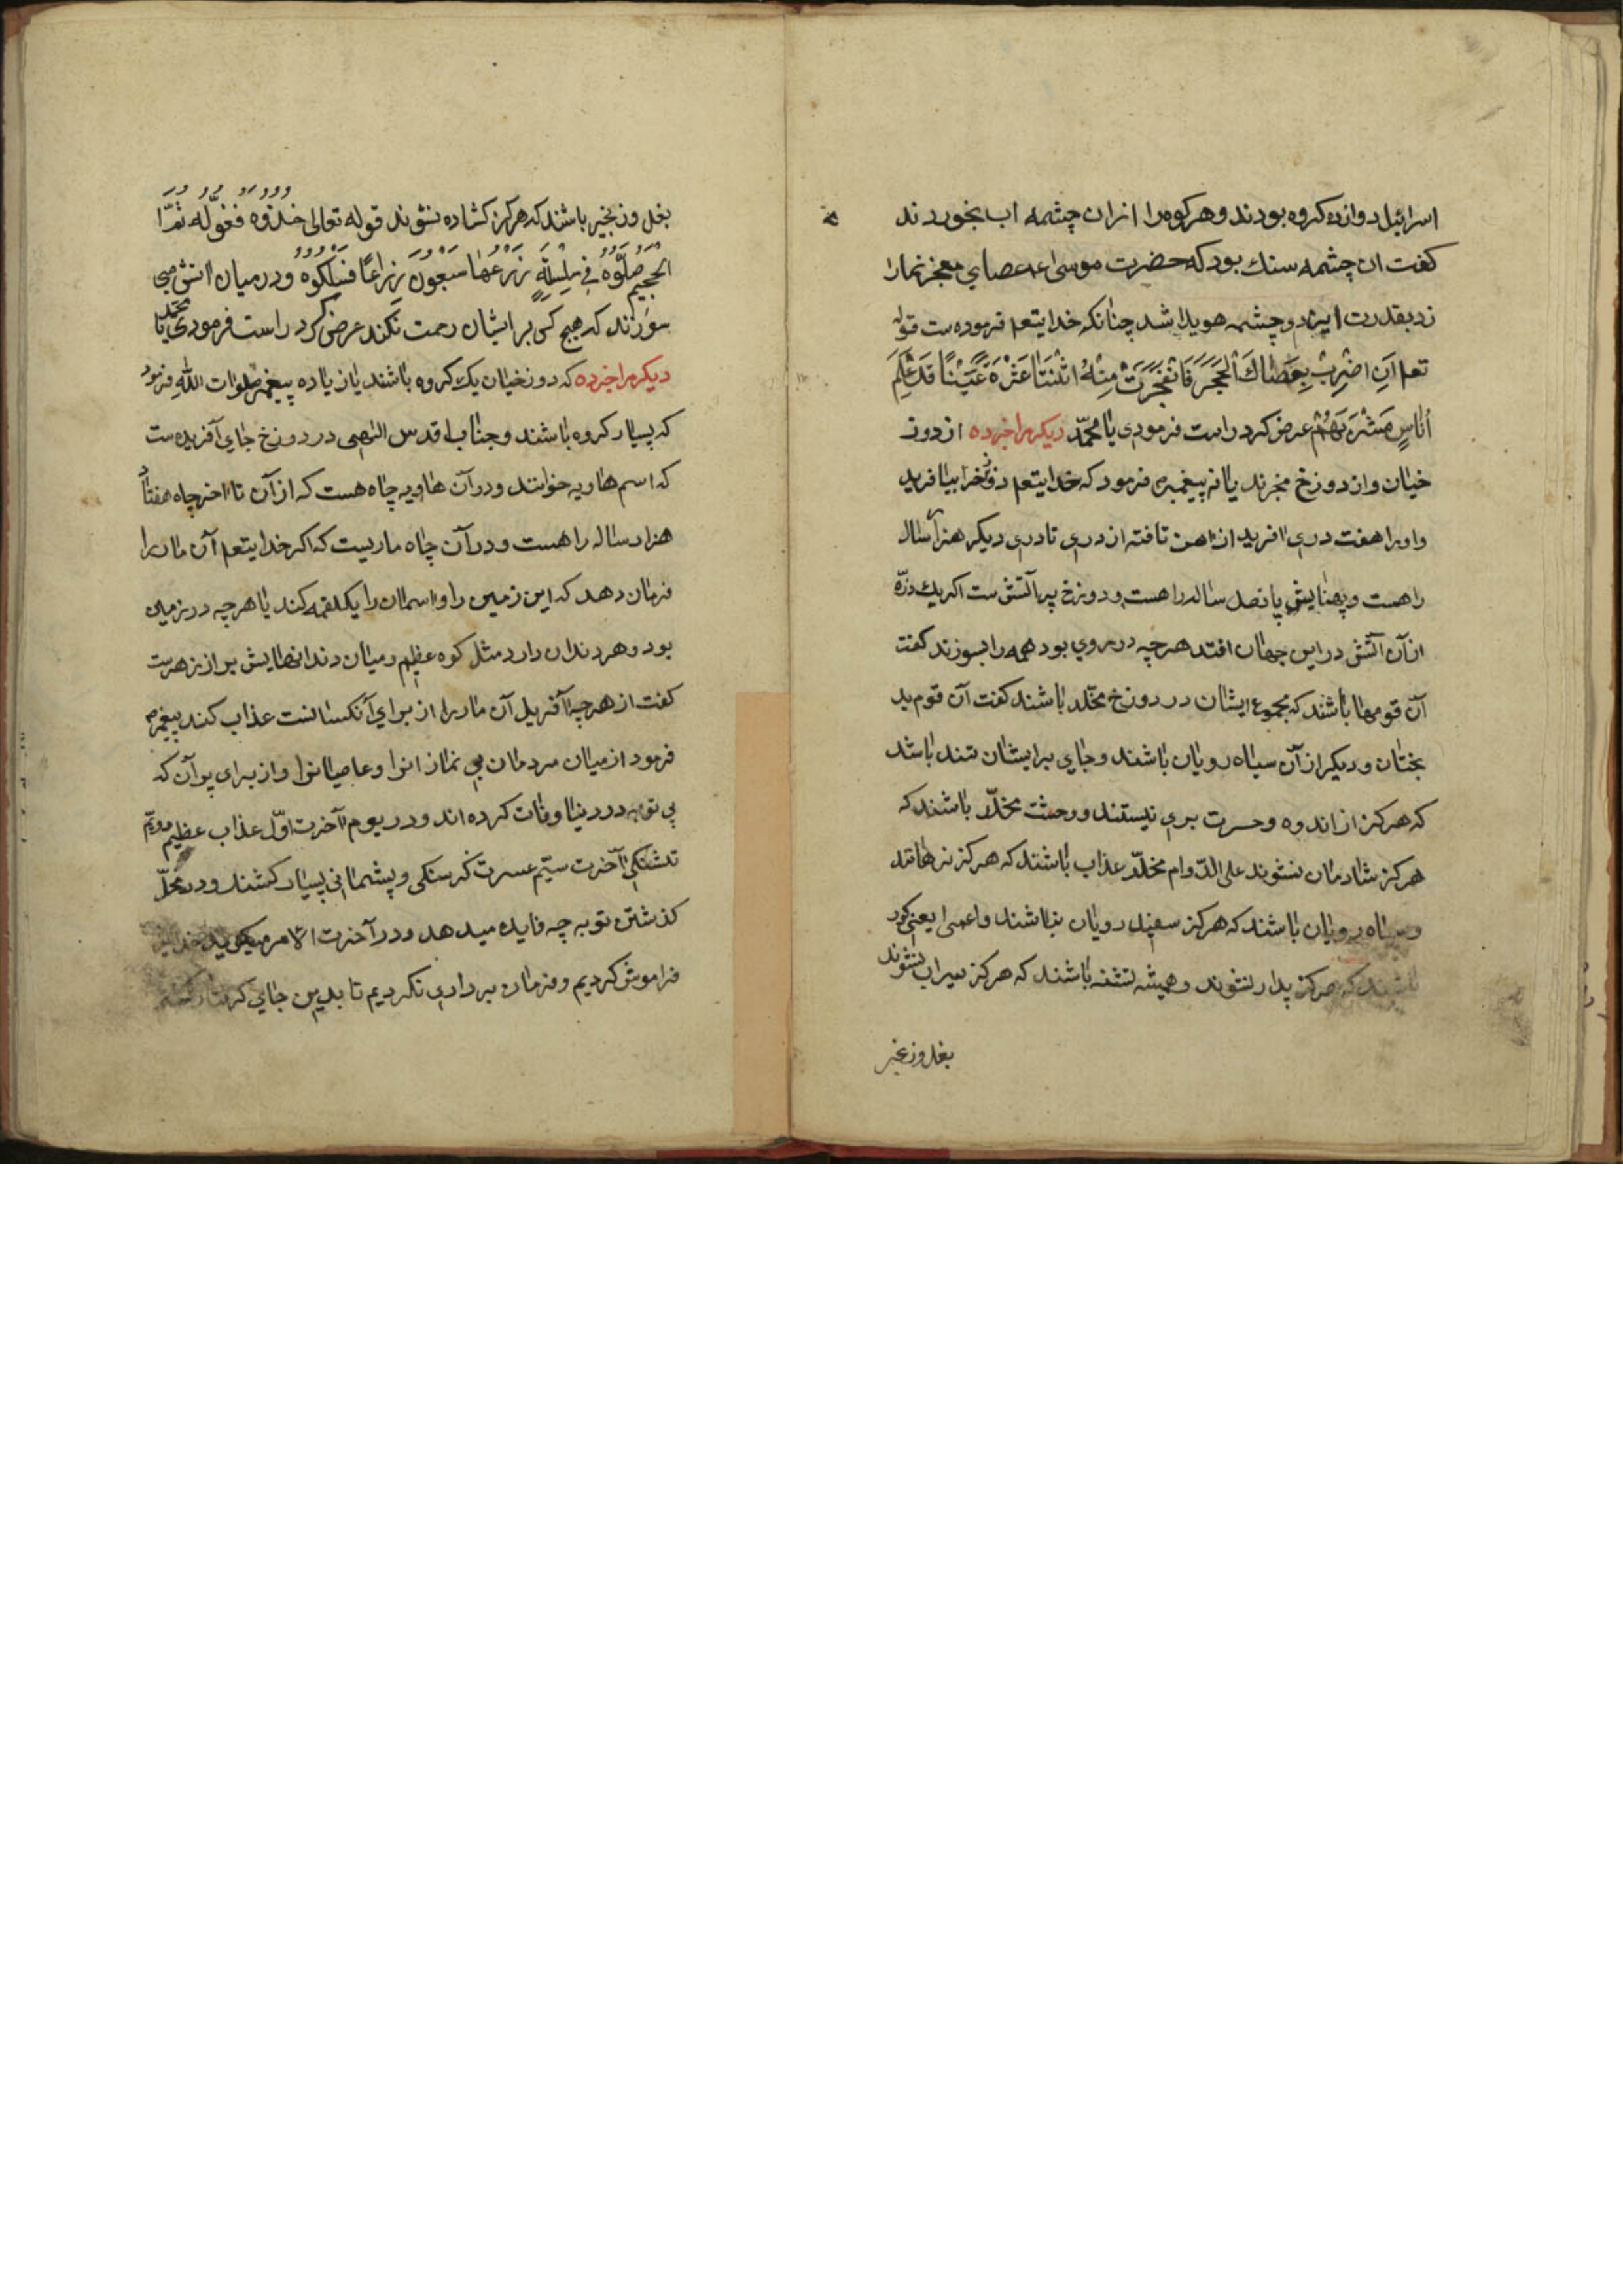 اسرائیل دوازده کروه بودند و هر کروه را ازان چشمه اب بخوردند
کفت ان چشمه سنك بود که حضرت موسی عم عصای معجز نمارا
زد بقدرت ایزد و چشمه هویدا شد چنانکه خدایتعم فرموده ست قوله
تعم اَنِ اضْرِبْ بِعَصَاكَ الْحَجَرَ فَانْفَجَرَتْ مِنْهُ اثْنَتَا عَشْرَةَ عَيْنًا قَدْ عَلِمَ
اُنَاسٍ مَشْرَبَهُمْ عرض کرد راست فرمودی یا محمّد دیکر مرا خبر ده از دوز
خیان و از دوزخ مخبرند یا نه پیغمبری فرمود که خدایتعم دوزخرا بیافرید
واورا هفت دری افرید از اهن تافته از دری تا دری دیکر هزار سال
راهست و پهنایش پانصد ساله راهست و دوزخ پر آتش ست اکر یك ذرّه
ازآن آتش در این جهان افتد هر چه در روی بود همه را بسوزند کفت
آن قومها باشند که مجموع ایشان در دوزخ مخلّد باشند کفت آن قوم بد
بختان و دیکر از آن سیاه رویان باشند و جای برایشان تند باشد
که هرکز از اندوه و حسرت بری نیستند و وحشت مخلّد باشند که
هرکز شادمان نشوند علی الدّوام مخلّد عذاب باشند که هرکز نرهانند
و سیاه رویان باشند که هرکز سفید رویان نباشند و اعمی یعنی کور
باشند که هرکز بدار نشوند و همیشه تشنه باشند که هرکز سیراب نشوند
بغل و زنجیر
بغل و زنجیر باشند که هرکز کشاده نشوند قوله تعالی خُذُوهُ فَغُلُّوهُ ثُمَّ
الْجَحِيمَ صَلُّوهُ فِي سِلْسِلَةٍ ذَرْعُهَا سَبْعُونَ ذِرَاعًا فَسْلُكُوهُ و درمیان اتش می
سوزند که هیچ کس بر ایشان رحمت نکند عرض کرد راست فرمودی یا محمّد
دیکر مرا خبر ده که دوزخیان یك کروه باشند یا زیاده پیغمبر صلوات الله فرمود
که بسیار کروه باشند و جناب اقدس الهی در دوزخ جای آفریده ست
که اسم هاویه خوانند و در آن هاویه چاه هست که از آن تا اخر چاه هفتاد
هزار ساله راهست و در آن چاه ماریست که اکر خدایتعم آن مار را
فرمان دهد که این زمین را و اسمان را یکلقمه کند یا هر چه در زمین
بود و هر دندان دارد مثل کوه عظیم و میان دندانهایش پر از زهرست
کفت از هر چه آفرید آن مار را از برای آنکسانست عذاب کند پیغمبر ص
فرمود از میان مردمان بی نماز انرا و عاصیانرا و از برای پر آن که
بی توبه در دنیا وفات کرده اند و در یوم آخرت اوّل عذاب عظیم دویّم
تشنکی آخرت سیّم عسرت کرسنکی و پشیمانی بسیار کشند و در محلّ
کذشتن توبه چه فایده میدهد و در آخرت الامر میکوید خدایرا
فراموش کردیم و فرمان برداری نکردیم تا بدین جای کرفتار کشتیم